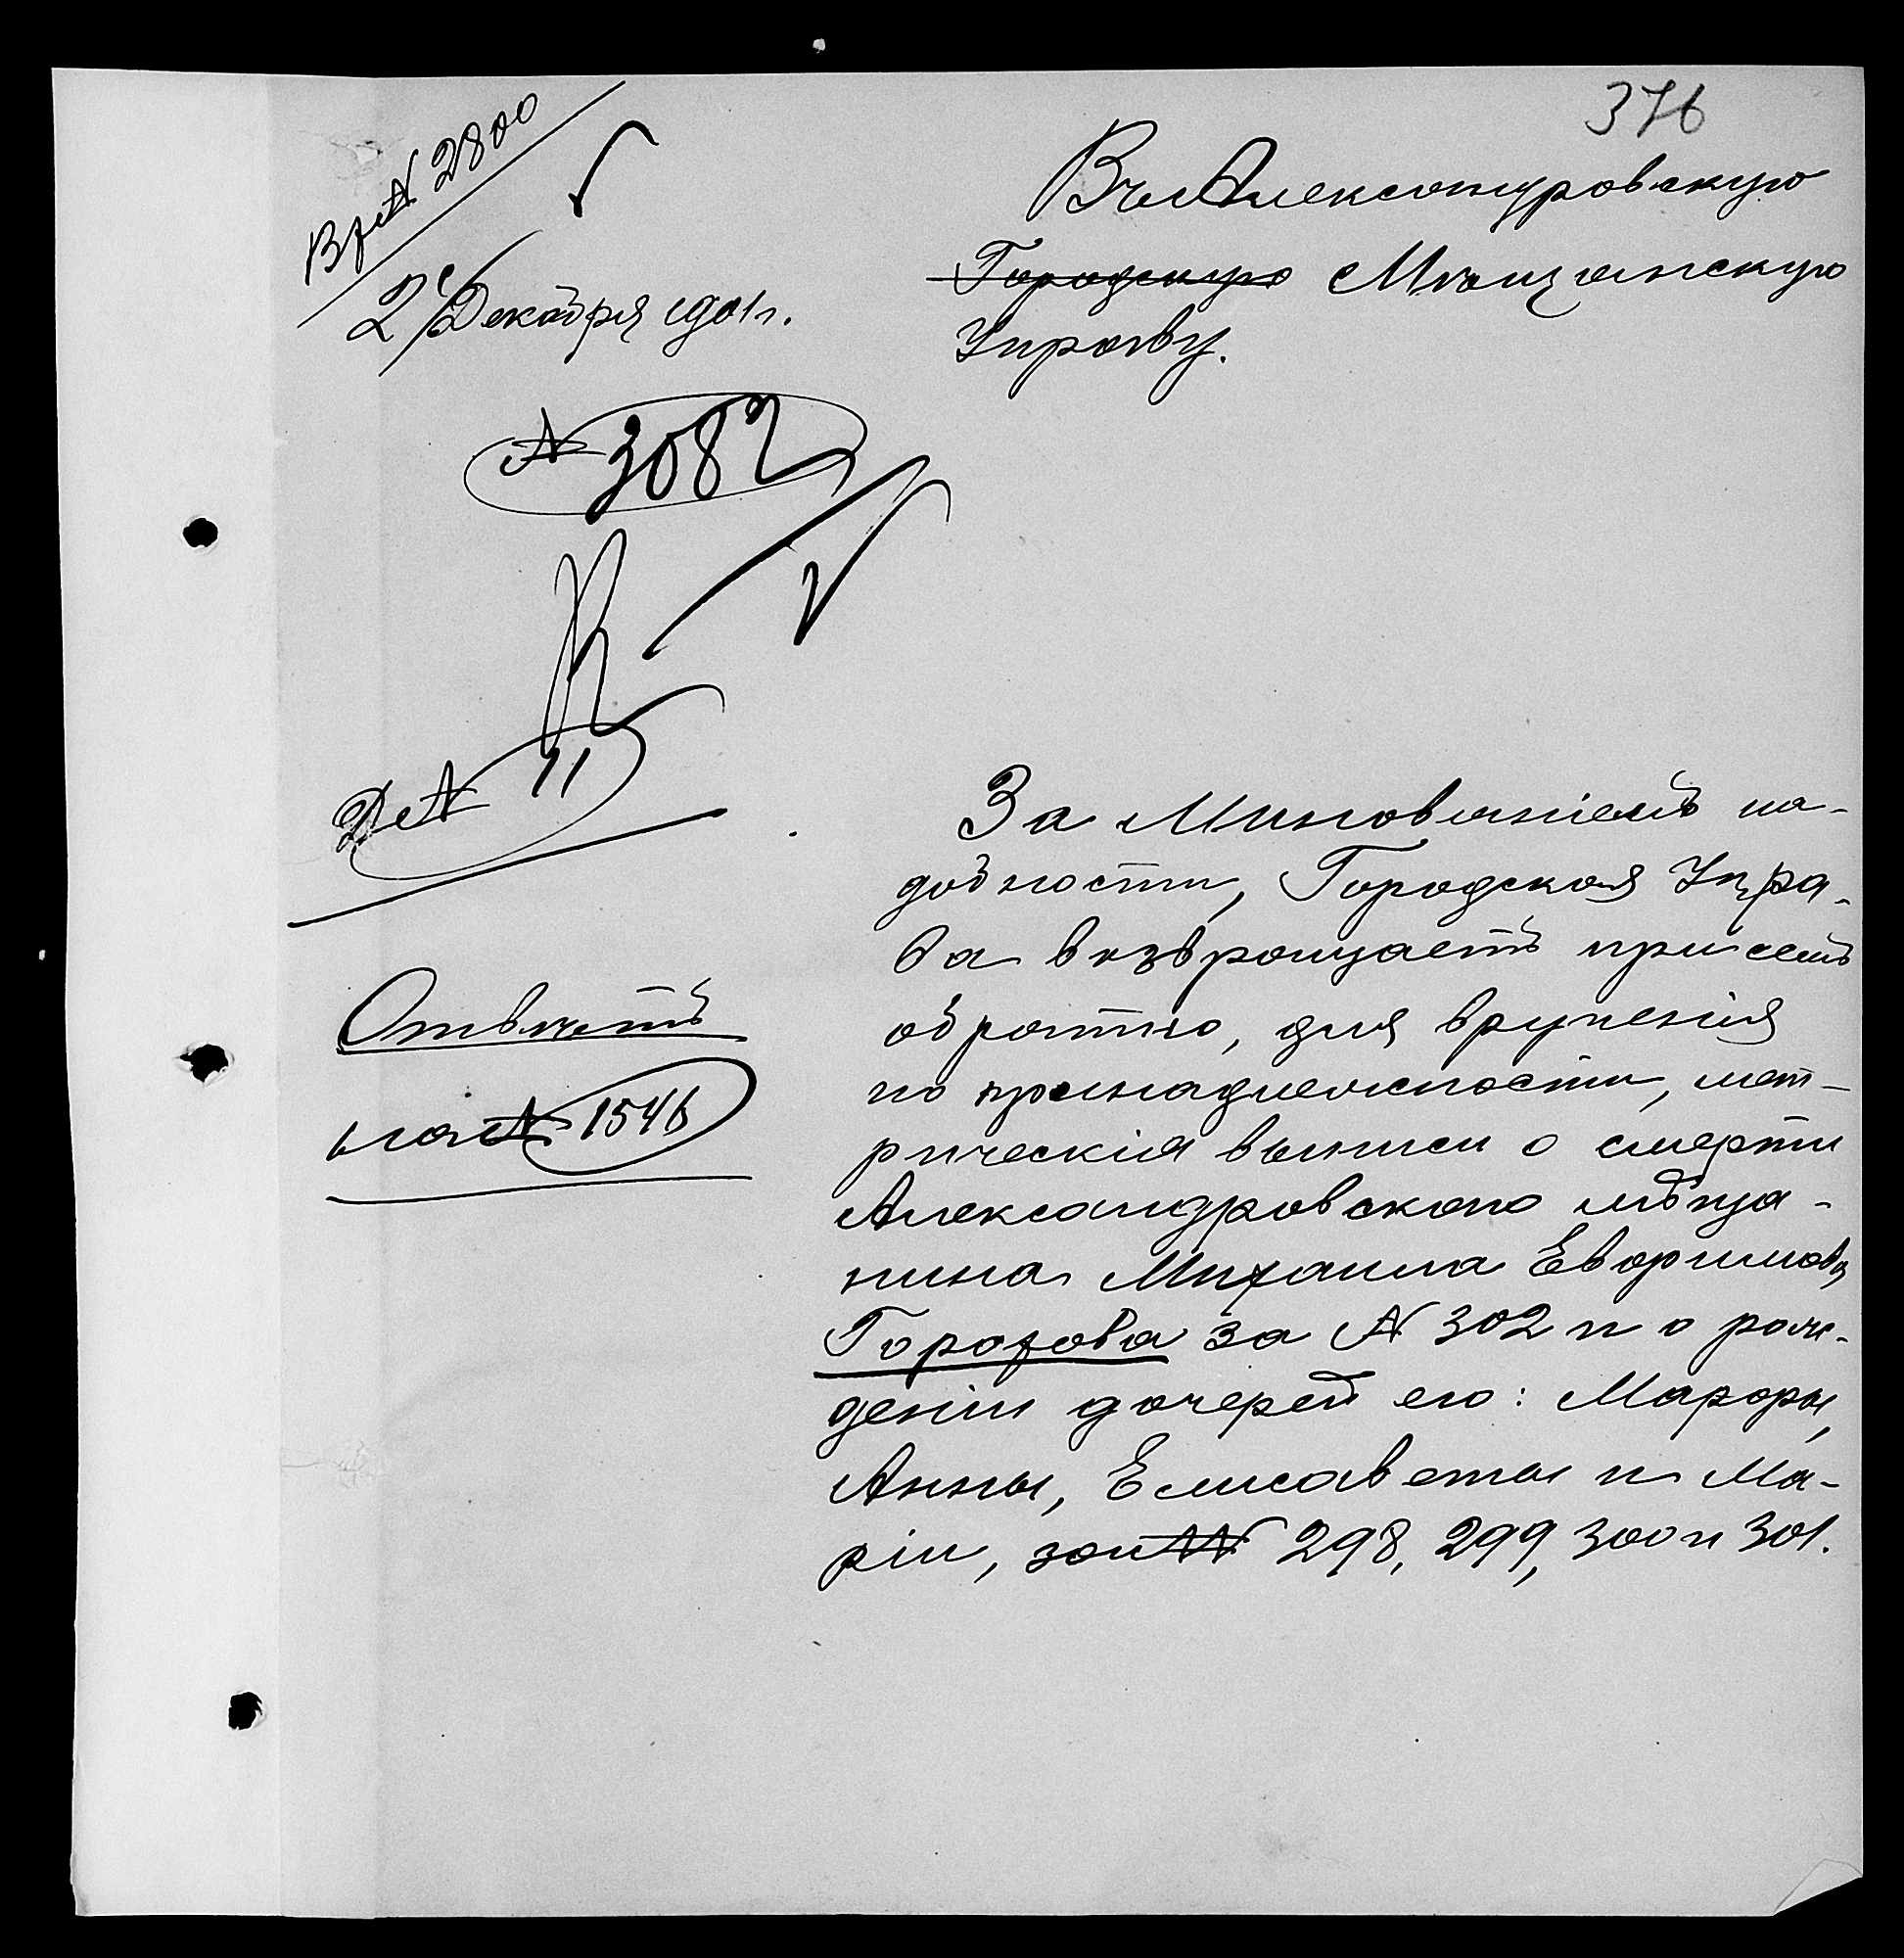 376
Вх № 2800
2 Декабря 1901 г.
№ 3082
Въ Александровскую
Городскую Мѣщанскую
Управу.
Д № 11
Отвѣтъ
на № 1546
За Минованіемъ на-
добности, Городская Упра-
ва возвращаетъ при семъ
обратно, для врученія
по принадлежности, мет-
рическія выписи о смерти
Александровскаго мѣща-
нина Михаила
Горохова за № 302 и о рож-
деніи дочерей его: Марѳы,
Анны, Елисаветы и Ма-
ріи, за №№ 298, 299, 300 и 301.